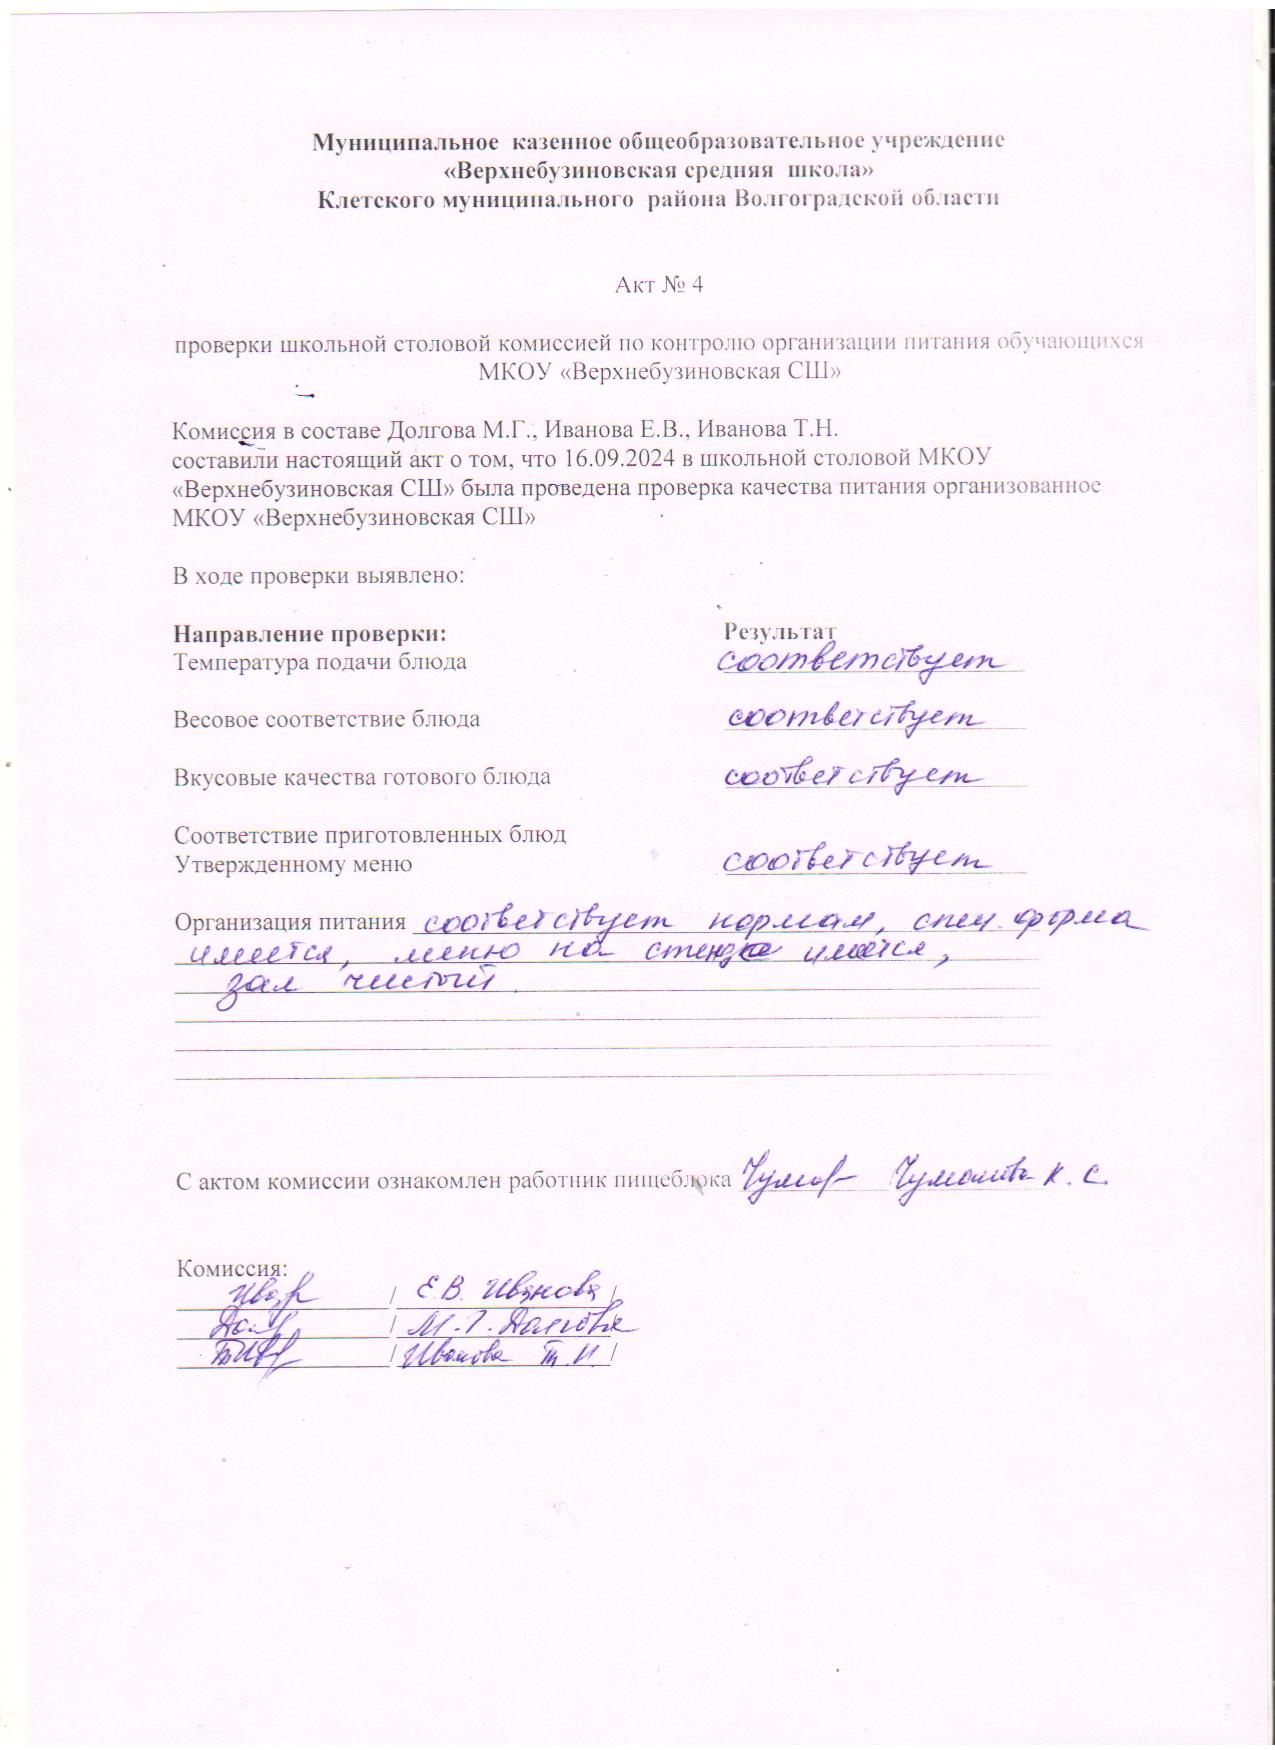 Муниципальное казенное общеобразовательное учреждение
«Верхнебузиновская средняя школа»
Клетского муниципального района Волгоградской области
Акт № 4
проверки школьной столовой комиссией по контролю организации питания обучающихся
МКОУ «Верхнебузиновская СШ»
Комиссия в составе Долгова М.Г., Иванова Е.В., Иванова Т.Н.
составили настоящий акт о том, что 16.09.2024 в школьной столовой МКОУ
«Верхнебузиновская СШ» была проведена проверка качества питания организованное
МКОУ «Верхнебузиновская СШ»
В ходе проверки выявлено:
Направление проверки: Результат
Температура подачи блюда соответствует
Весовое соответствие блюда соответствует
Вкусовые качества готового блюда соответствует
Соответствие приготовленных блюд
Утвержденному меню соответствует
Организация питания соответствует нормам, спец. форма
имеется, меню на стенде имеется,
зал чистый.
С актом комиссии ознакомлен работник пищеблока К. С.
Комиссия:
/ Е.В. Иванова /
/ М.Г. Долгова
/ Иванова Т.Н. /